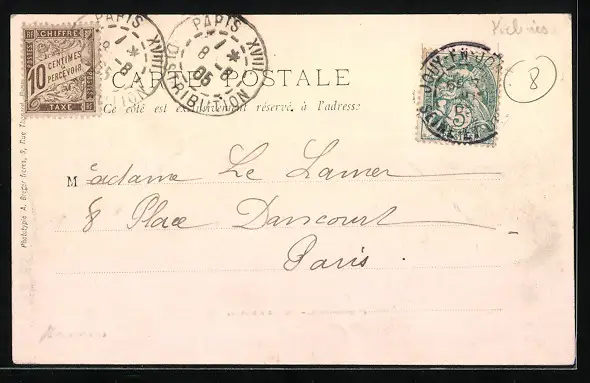 CHIFFRE
10 CENTIMES A PERCEVOIR
TAXE
PARIS XVIII
PARIS XVIII
DISTRIBUTION
8
CARTE POSTALE
Ce côté est exclusivement réservé à l'adresse
JOUY-EN-J
SEINE-ET-
Madame Le Lamer
8 Place Dancourt
Paris.
Phototypie A. Breger frères, 9, Rue